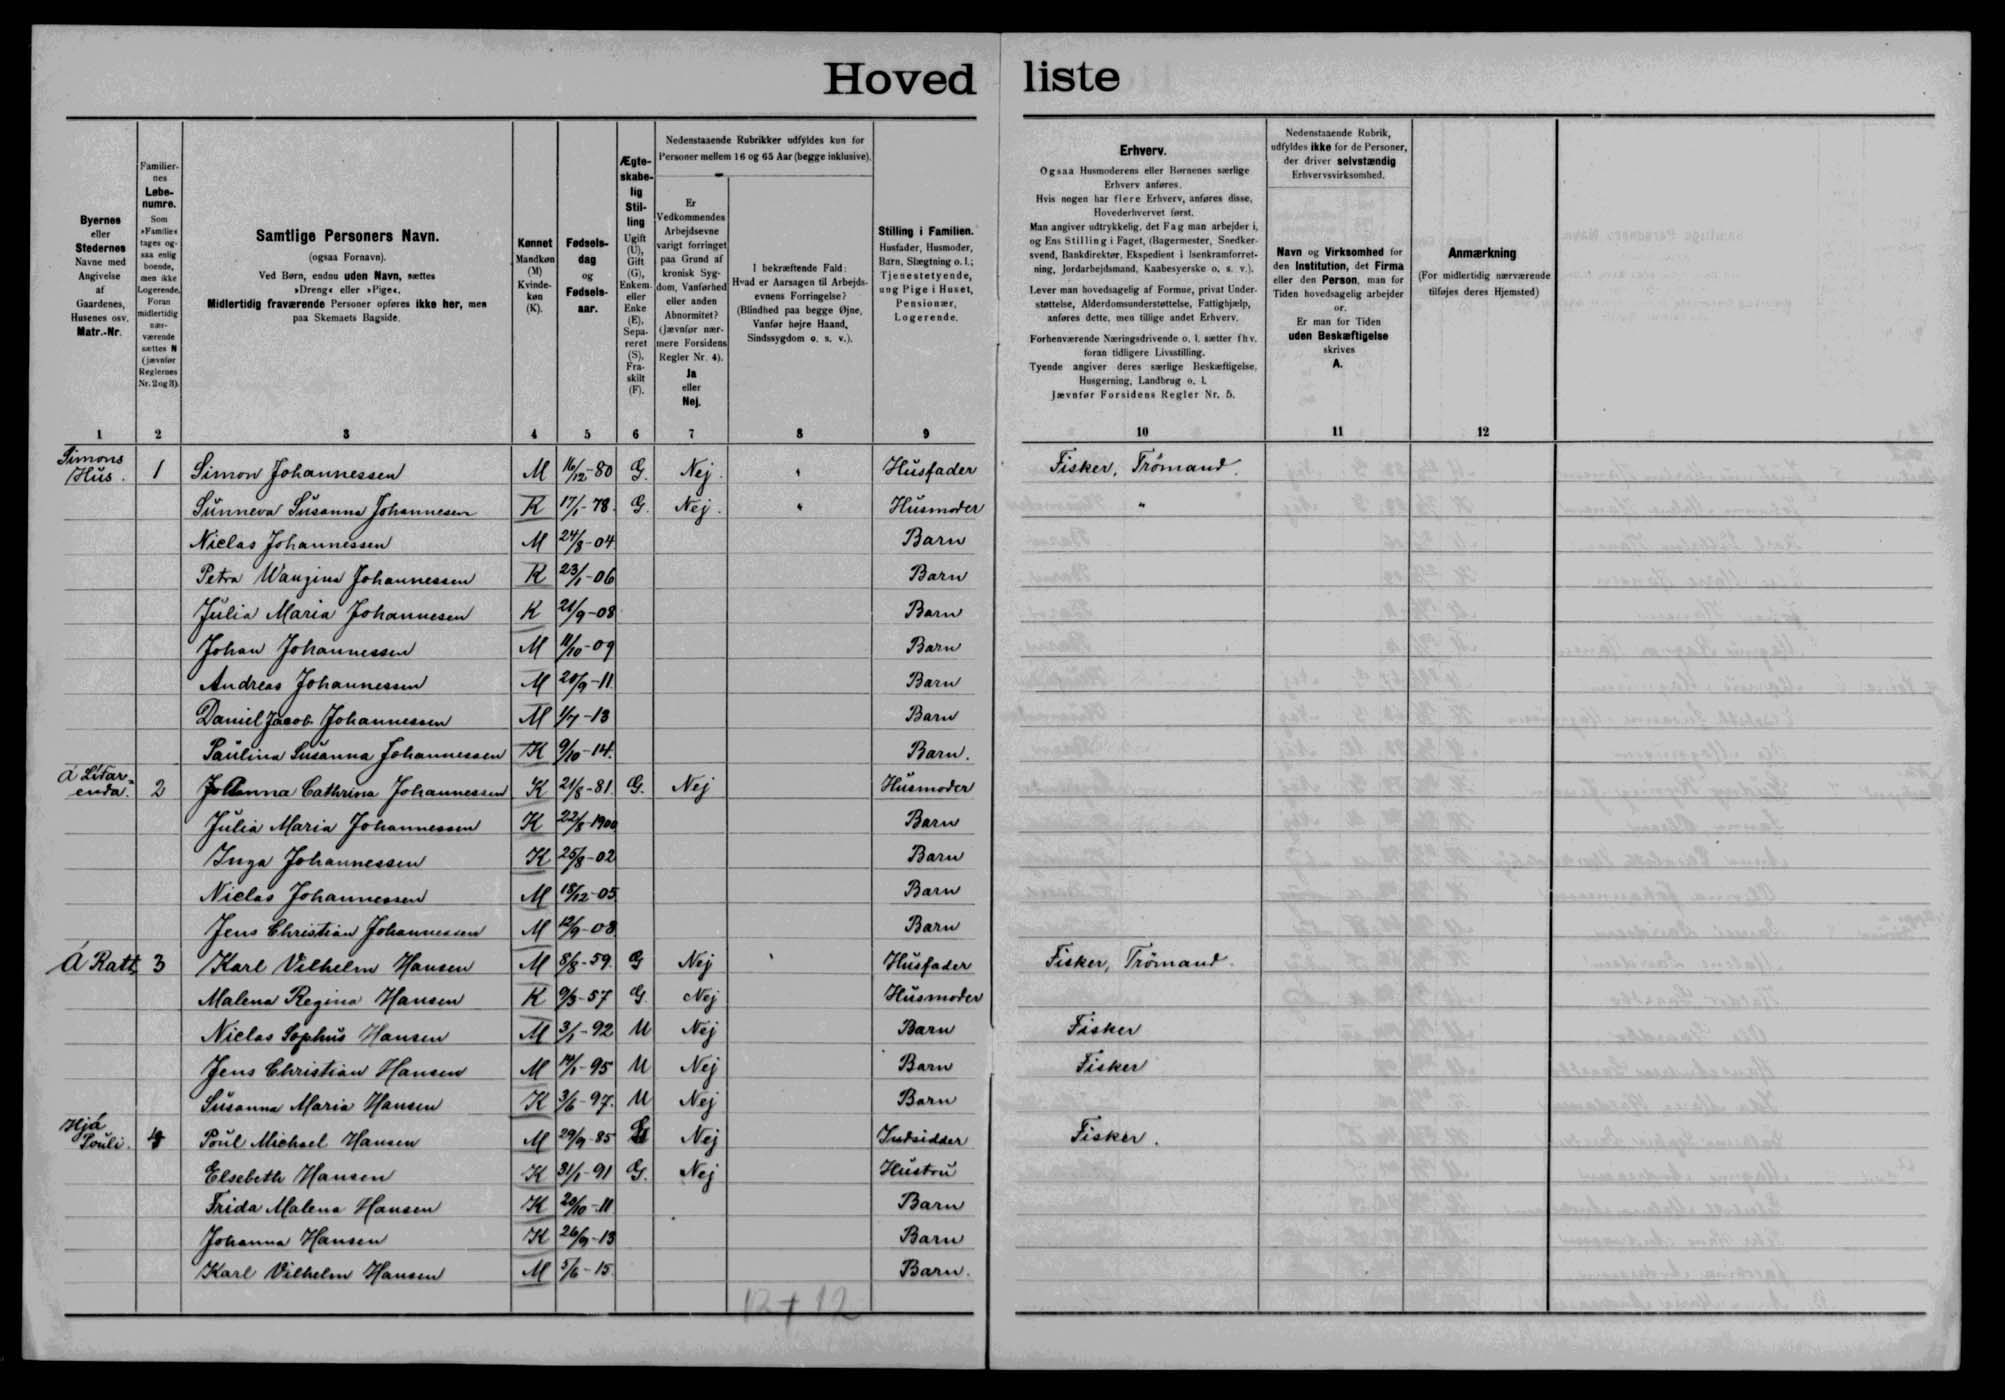 Hovedliste
Byernes eller Stedernes Navne med Angivelse af Gaardenes, Husenes osv. Matr.-Nr.
Familiernes Løbenumre. Som »Familie« tages ogsaa enlig boende, men ikke Logerende. Foran midlertidig nærværende sættes N (jævnfør Reglernes Nr. 2 og 3).
Samtlige Personers Navn.
(ogsaa Fornavn).
Ved Børn, endnu uden Navn, sættes
»Dreng« eller »Pige«.
Midlertidig fraværende Personer opføres ikke her, men
paa Skemaets Bagside.
Kønnet Mandkøn (M) Kvindekøn (K).
Fødselsdag og Fødselsaar.
Ægteskabelig Stilling Ugift (U), Gift (G), Enkem. eller Enke (E), Separeret (S), Fraskilt (F).
Nedenstaaende Rubrikker udfyldes kun for
Personer mellem 16 og 65 Aar (begge inklusive).
Er Vedkommendes Arbejdsevne varigt forringet paa Grund af kronisk Sygdom, Vanførhed eller anden Abnormitet? (Jævnfør nærmere Forsidens Regler Nr. 4). Ja eller Nej.
I bekræftende Fald: Hvad er Aarsagen til Arbejdsevnens Forringelse? (Blindhed paa begge Øjne, Vanfør højre Haand, Sindssygdom o. s. v.).
Stilling i Familien. Husfader, Husmoder, Barn, Slægtning o. l.; Tjenestetyende, ung Pige i Huset, Pensionær, Logerende.
Erhverv.
Ogsaa Husmoderens eller Børnenes særlige
Erhverv anføres.
Hvis nogen har flere Erhverv, anføres disse,
Hovederhvervet først.
Man angiver udtrykkelig, det Fag man arbejder i,
og Ens Stilling i Faget, (Bagermester, Snedkersvend, Bankdirektør, Ekspedient i Isenkramforretning, Jordarbejdsmand, Kaabesyerske o. s. v.).
Lever man hovedsagelig af Formue, privat Understøttelse, Alderdomsunderstøttelse, Fattighjælp,
anføres dette, men tillige andet Erhverv.
Forhenværende Næringsdrivende o. l. sætter fhv.
foran tidligere Livsstilling.
Tyende angiver deres særlige Beskæftigelse,
Husgerning, Landbrug o. l.
Jævnfør Forsidens Regler Nr. 5.
Nedenstaaende Rubrik,
udfyldes ikke for de Personer,
der driver selvstændig
Erhvervsvirksomhed.
Navn og Virksomhed for
den Institution, det Firma
eller den Person, man for
Tiden hovedsagelig arbejder
for.
Er man for Tiden
uden Beskæftigelse
skrives
A.
Anmærkning
(For midlertidig nærværende
tilføjes deres Hjemsted)
1 2 3 4 5 6 7 8 9 10 11 12
Simons Hus. 1 Simon Johannessen M 16/12-80 G. Nej. " Husfader Fisker, Trømand.
Sunneva Susanna Johannesen K 17/1-78. G. Nej. " Husmoder "
Niclas Johannessen M 24/8-04 Barn
Petra Waugina Johannessen K 23/1-06 Barn
Julia Maria Johannesen K 21/9-08 Barn
Johan Johannessen M 11/10-09 Barn
Andreas Johannessen M 20/9-11. Barn
Daniel Jacob Johannessen M 1/7-13 Barn
Paulina Susanna Johannessen K 9/10-14. Barn.
Á Litarenda. 2 Johanna Cathrina Johannessen K 21/8-81 G. Nej Husmoder
Julia Maria Johannessen K 22/8-1900 Barn
Inga Johannessen K 25/8-02 Barn
Niclas Johannessen M 18/12-05 Barn
Jens Christian Johannessen M 12/9-08 Barn
Á Ratt 3 Karl Vilhelm Hansen M 8/8-59. G Nej Husfader Fisker, Trømand.
Malena Regina Hansen K 9/3-57 G. Nej Husmoder
Niclas Sophus Hansen M 3/1-92 U Nej Barn Fisker
Jens Christian Hansen M 14/1-95 U Nej Barn Fisker
Susanna Maria Hansen K 3/6-97. U Nej Barn
Hjá Pouli. 4 Poul Michael Hansen M 29/9-85 G Nej Indsidder Fisker.
Elsebeth Hansen K 31/1-91 G. Nej Hustru
Frida Malena Hansen K 20/10-11 Barn
Johanna Hansen K 26/9-13 Barn
Karl Vilhelm Hansen M 5/6-15. Barn.
12+12